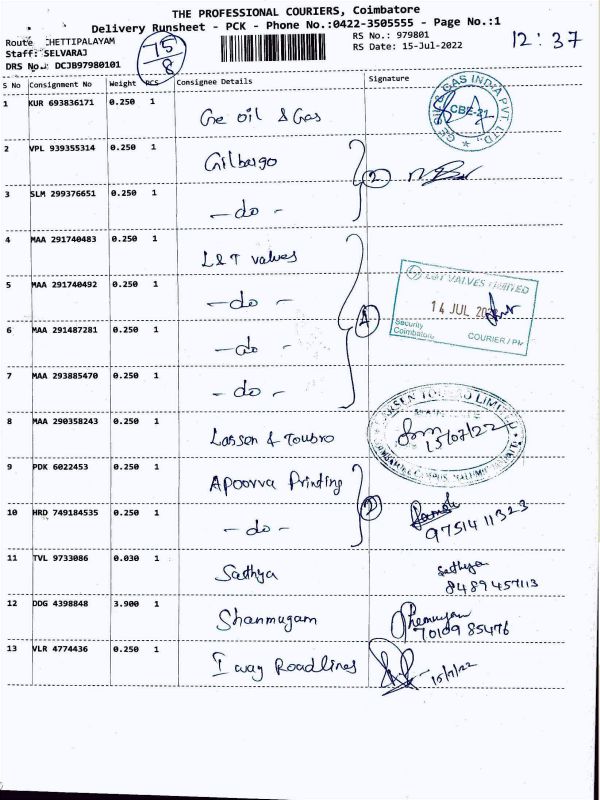 THE PROFESSIONAL COURIERS, Coimbatore
Delivery Runsheet - PCK - Phone No.:0422-3505555 - Page No.:1
Route CHETTIPALAYAM
Staff: SELVARAJ
DRS No.: DCJB97980101
75
8
RS No.: 979801
RS Date: 15-Jul-2022
12:37
S No Consignment No Weight PCS Consignee Details Signature
1 KUR 693836171 0.250 1 Ge oil & Gas
GE OIL & GAS INDIA PVT. LTD.,
CBE-21
2 VPL 939355314 0.250 1 Gilbargo
2
3 SLM 299376651 0.250 1 - do -
4 MAA 291740483 0.250 1 L&T valves
5 MAA 291740492 0.250 1 - do -
L&T VALVES LIMITED
14 JUL 2022
Security
Coimbatore
COURIER /
6 MAA 291487281 0.250 1 - do -
4
7 MAA 293885470 0.250 1 - do -
8 MAA 290358243 0.250 1 Larsen & Toubro
LARSEN TOUBRO LIMITED
15/07/22
9 PDK 6022453 0.250 1 Apoorva Printing
2
10 HRD 749184535 0.250 1 - do -
97514 11323
11 TVL 9733086 0.030 1 Sathya
Sathya
8489457113
12 DDG 4398848 3.900 1 Shanmugam
70109 85476
13 VLR 4774436 0.250 1 I way Roadlines
15/7/22